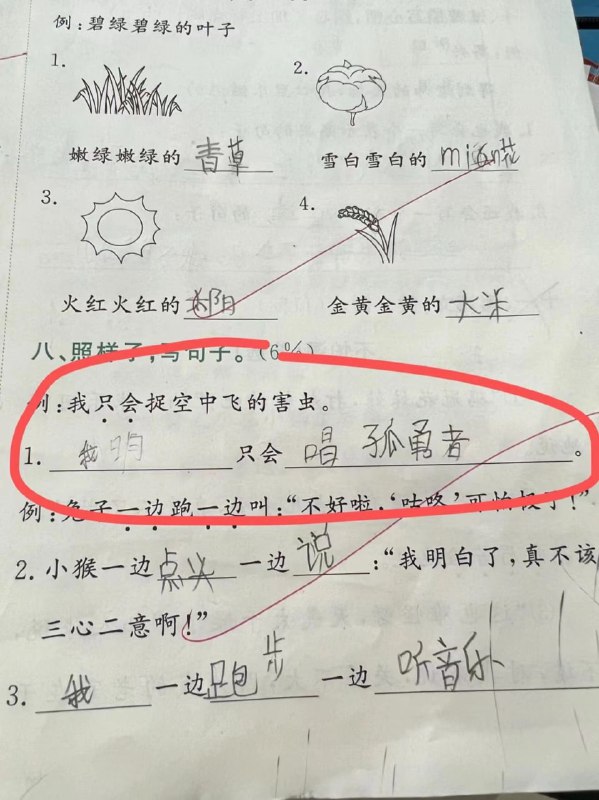 例:碧绿碧绿的叶子
1. 2.
嫩绿嫩绿的 青草 雪白雪白的 mián花
3. 4.
火红火红的 太阳 金黄金黄的 大米
八、照样子,写句子。(6%)
例:我只会捉空中飞的害虫。
1. 我 只会 唱 孤勇者。
例:兔子一边跑一边叫:“不好啦,‘咕咚’可怕极了!”
2. 小猴一边点头一边说:“我明白了,真不该
三心二意啊!”
3. 我 一边跑步 一边 听音乐